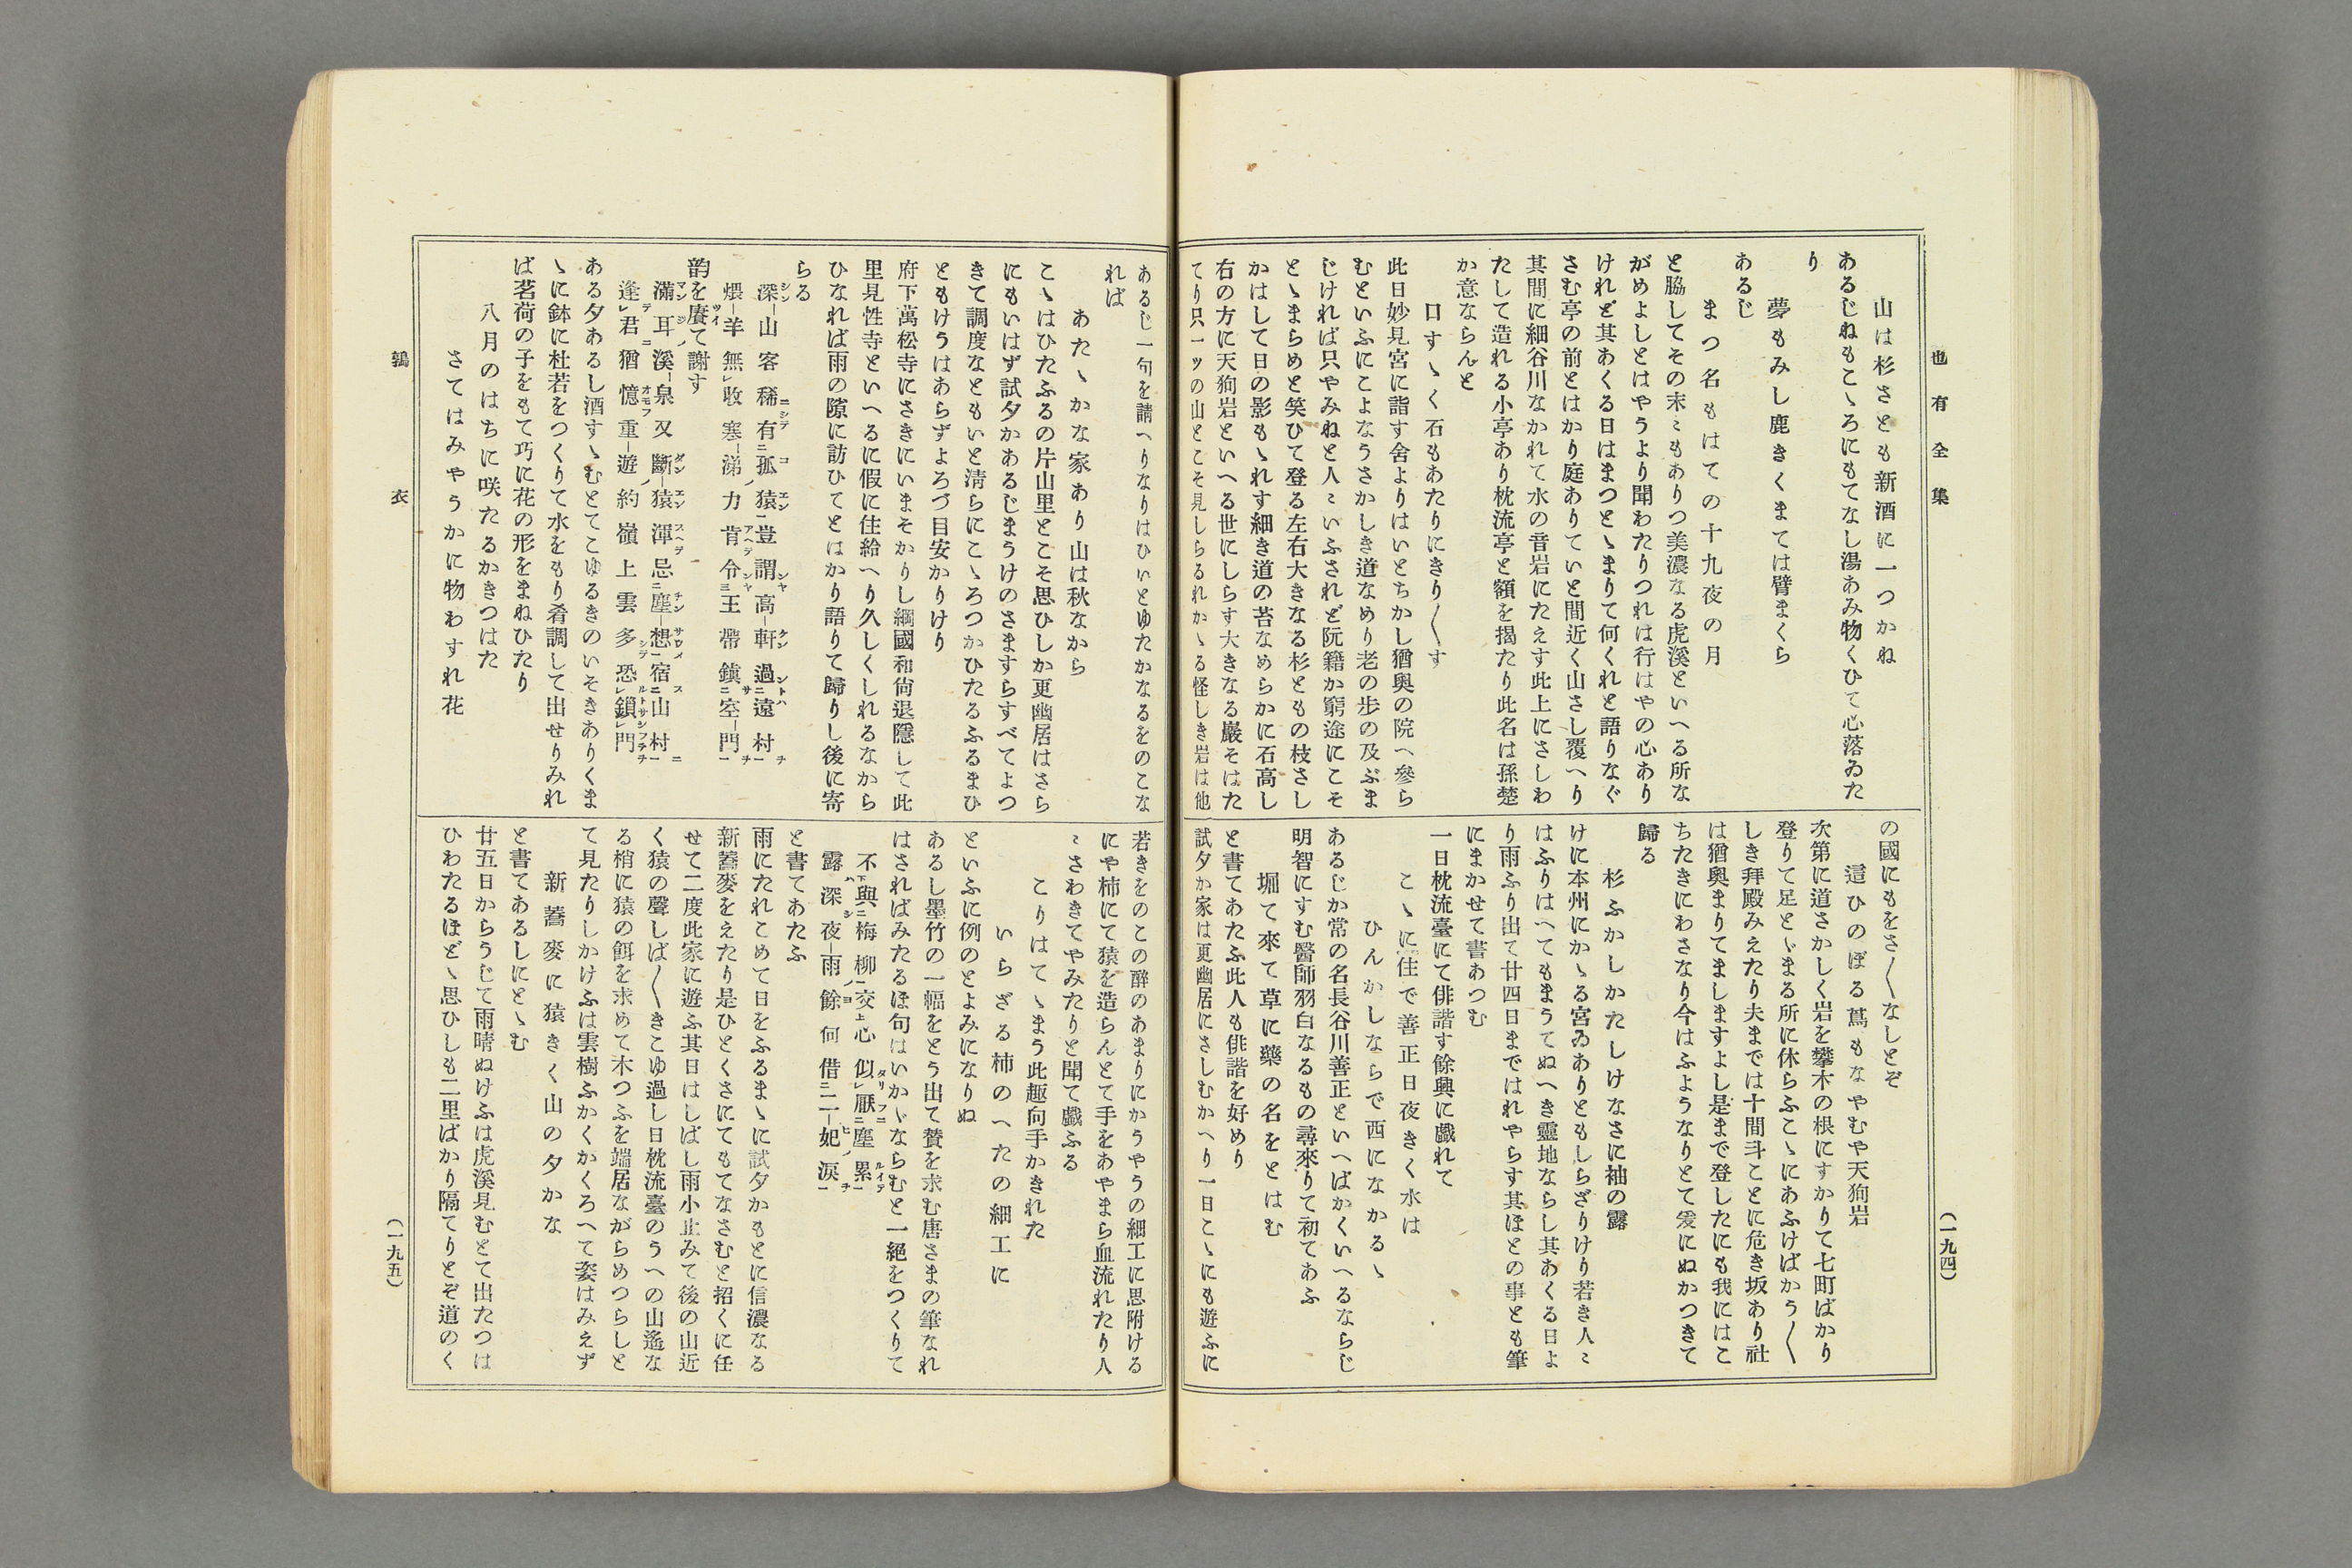 也有全集
(一九四)
山は杉さとも新酒に一つかね
あるじねもこゝろにもてなし湯あみ物くひて心落ゐた
り
夢もみし鹿きくまては臂まくら
あるじ
まつ名もはての十九夜の月
と脇してその末〻もありつ美濃なる虎溪といへる所な
がめよしとはやうより聞わたりつれは行はやの心あり
けれど其あくる日はまつとゝまりて何くれと語りなぐ
さむ亭の前とはかり庭ありていと間近く山さし覆へり
其間に細谷川なかれて水の音岩にたえす此上にさしわ
たして造れる小亭あり枕流亭と額を揭たり此名は孫楚
か意ならんと
口すゝく石もあたりにきり〱す
此日妙見宮に詣す舍よりはいとちかし猶奥の院へ參ら
むといふにこよなうさかしき道なめり老の步の及ぶま
じければ只やみねと人〻いふされど阮籍か窮途にこそ
とゝまらめと笑ひて登る左右大きなる杉ともの枝さし
かはして日の影もゝれす細き道の苔なめらかに石高し
右の方に天狗岩といへる世にしらす大きなる巖そはた
てり只一ッの山とこそ見しらるれかゝる怪しき岩は他
の國にもをさ〱なしとぞ
這ひのぼる蔦もなやむや天狗岩
次第に道さかしく岩を攀木の根にすかりて七町ばかり
登りて足とゞまる所に休らふこゝにあふけばかう〱
しき拜殿みえたり夫までは十間斗ことに危き坂あり社
は猶奧まりてましますよし是まで登したにも我にはこ
ちたきにわさなり今はふようなりとて爰にぬかつきて
歸る
杉ふかしかたしけなさに袖の露
けに本州にかゝる宮ゐありともしらざりけり若き人〻
はふりはへてもまうてぬへき靈地ならし其あくる日よ
り雨ふり出て廿四日まではれやらす其ほとの事とも筆
にまかせて書あつむ
一日枕流臺にて俳諧す餘興に戲れて
こゝに住で善正日夜きく水は
ひんかしならで西になかるゝ
あるじか常の名長谷川善正といへばかくいへるならじ
明智にすむ醫師羽白なるもの尋來りて初てあふ
堀て來て草に藥の名をとはむ
と書てあたふ此人も俳諧を好めり
試夕か家は更幽居にさしむかへり一日こゝにも遊ふに
鶉衣
(一九五)
あるじ一句を請へりなりはひいとゆたかなるをのこな
れば
あたゝかな家あり山は秋なから
こゝはひたふるの片山里とこそ思ひしか更幽居はさら
にもいはず試夕かあるじまうけのさますらすべてよつ
きて調度なともいと淸らにこゝろつかひたるふるまひ
ともけうはあらずよろづ目安かりけり
府下萬松寺にさきにいまそかりし綱國和尙退隱して此
里見性寺といへるに假に住給へり久しくしれるなから
ひなれば雨の隙に訪ひてとはかり語りて歸りし後に寄
らる
深山客稀有孤猿豈謂高軒過遠村
煨羊無收寒涕力肯令王帶鎭空門
韵を賡て謝す
滿耳溪泉又斷猿渾忌塵想宿山村
逢君猶憶重遊約嶺上雲多恐鎖門
ある夕あるし酒すゝむとてこゆるきのいそきありくま
ゝに鉢に杜若をつくりて水をもり肴調して出せりみれ
ば茗荷の子をもて巧に花の形をまねひたり
八月のはちに咲たるかきつはた
さてはみやうかに物わすれ花
若きをのこの醉のあまりにかうやうの細工に思附ける
にや柿にて猿を造らんとて手をあやまら血流れたり人
〻さわきてやみたりと聞て戲ふる
こりはてゝまう此趣向手かきれた
いらざる柿のへたの細工に
といふに例のとよみになりぬ
あるし墨竹の一幅をとう出て賛を求む唐さまの筆なれ
はさればみたるほ句はいかゞならむと一絕をつくりて
不與梅柳交心似厭塵累
露深夜雨餘何借二妃淚
と書てあたふ
雨にたれこめて日をふるまゝに試夕かもとに信濃なる
新蕎麥をえたり是ひとくさにてもてなさむと招くに任
せて二度此家に遊ふ其日はしばし雨小止みて後の山近
く猿の聲しば〱きこゆ過し日枕流臺のうへの山遙な
る梢に猿の餌を求めて木つふを端居ながらめつらしと
て見たりしかけふは雲樹ふかくかくろへて姿はみえず
新蕎麥に猿きく山の夕かな
と書てあるしにとゝむ
廿五日からうじて雨晴ぬけふは虎溪見むとて出たつは
ひわたるほどゝ思ひしも二里ばかり隔てりとぞ道のく